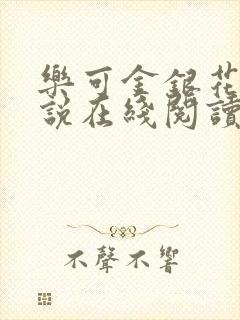 樂可金銀花
說在綫閱讀
不聲不響